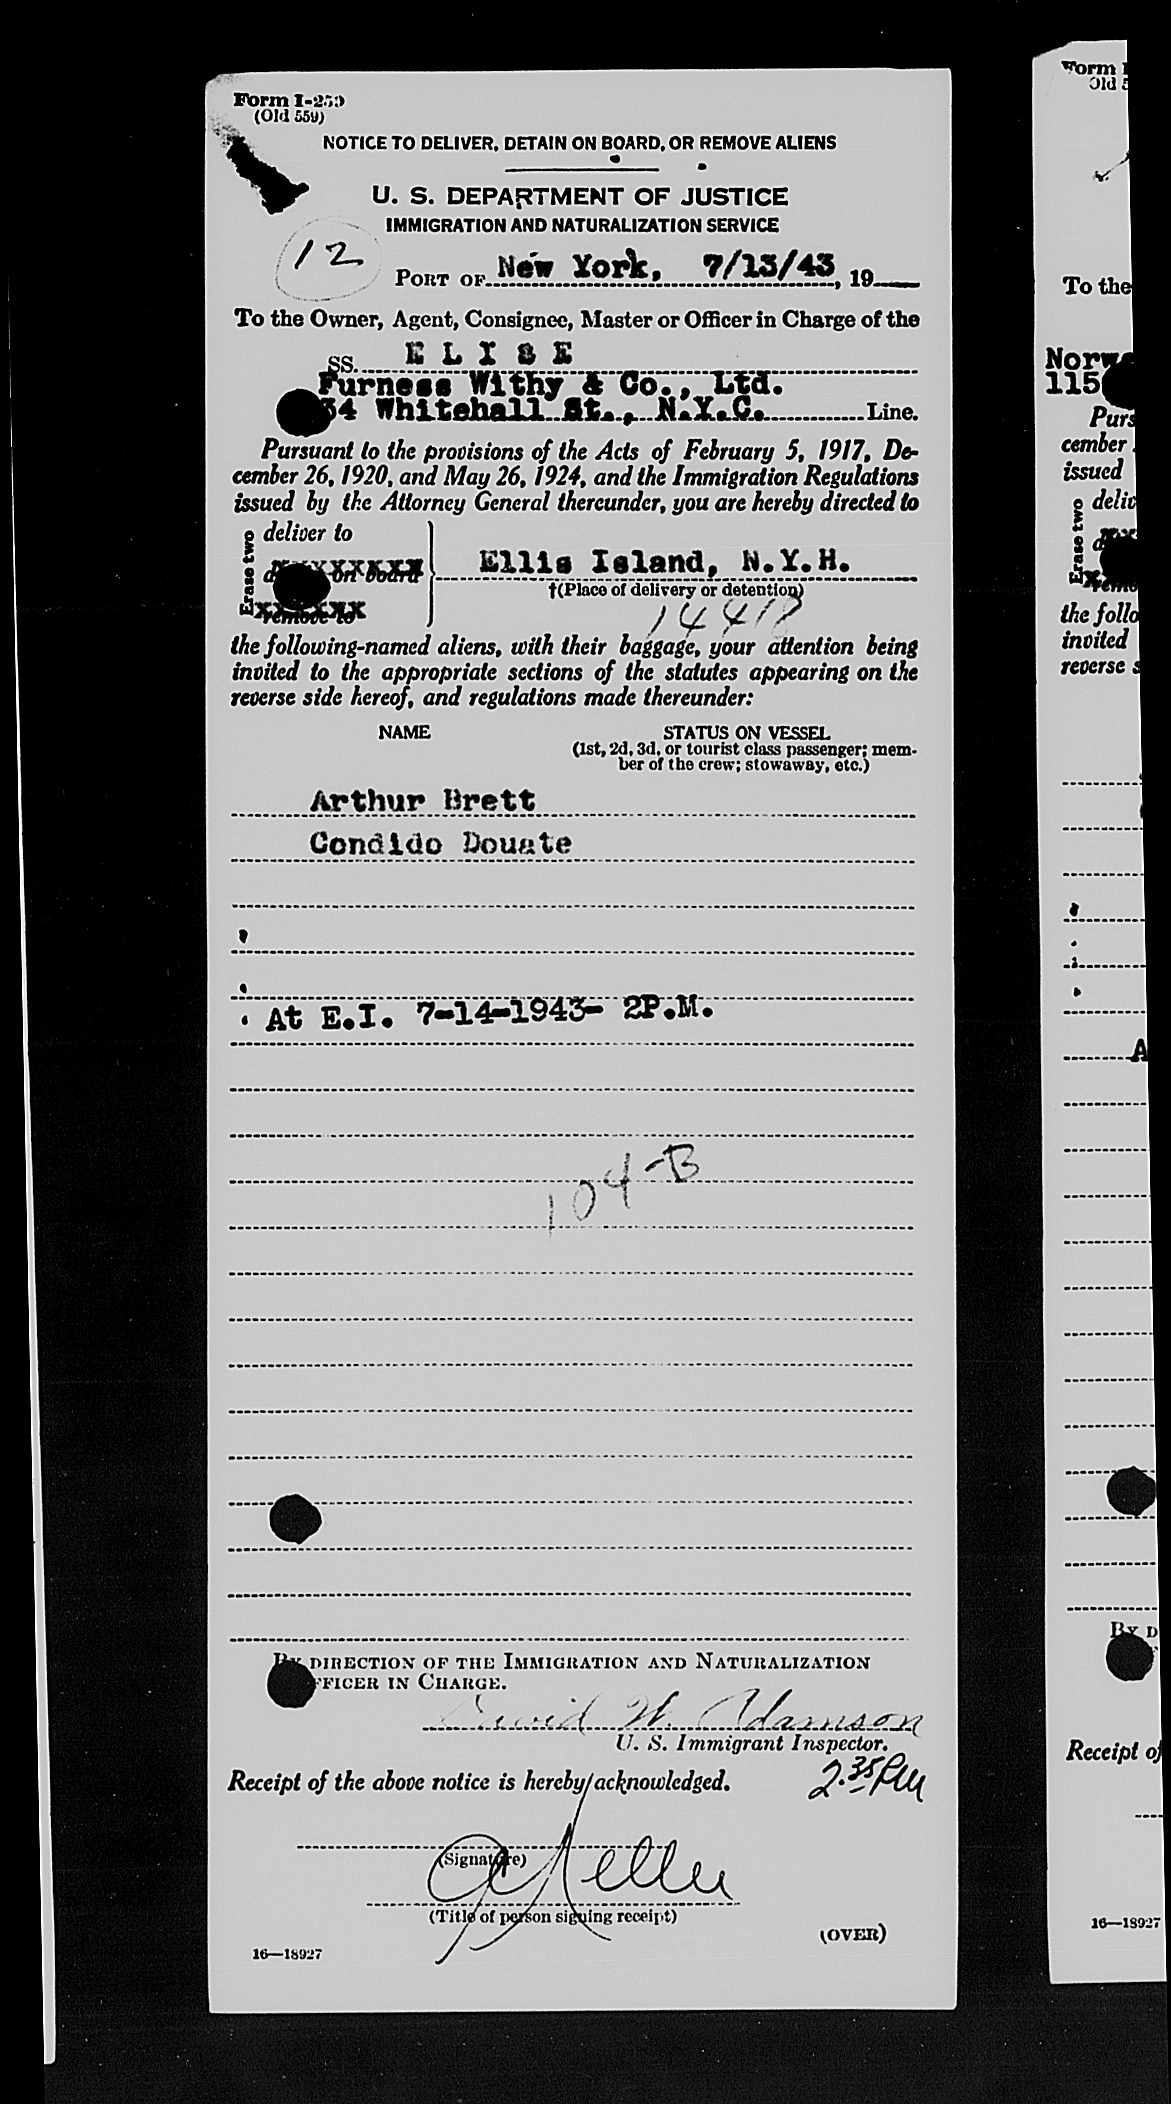 Form I-259
(Old 559)
NOTICE TO DELIVER, DETAIN ON BOARD, OR REMOVE ALIENS
U. S. DEPARTMENT OF JUSTICE
IMMIGRATION AND NATURALIZATION SERVICE
12
PORT OF New York, 7/13/43, 19
To the Owner, Agent, Consignee, Master or Officer in Charge of the
SS. E L I S E
Furness Withy & Co., Ltd.
34 Whitehall St., N.Y.C. Line.
Pursuant to the provisions of the Acts of February 5, 1917, De-
cember 26, 1920, and May 26, 1924, and the Immigration Regulations
issued by the Attorney General thereunder, you are hereby directed to
Erase two
deliver to
on board
remove to
Ellis Island, N.Y.H.
†(Place of delivery or detention)
14418
the following-named aliens, with their baggage, your attention being
invited to the appropriate sections of the statutes appearing on the
reverse side hereof, and regulations made thereunder:
NAME STATUS ON VESSEL
(1st, 2d, 3d, or tourist class passenger; mem-
ber of the crew; stowaway, etc.)
Arthur Brett
Condido Douate
At E.I. 7-14-1943- 2P.M.
104-B
BY DIRECTION OF THE IMMIGRATION AND NATURALIZATION
OFFICER IN CHARGE.
David W. Adamson
U. S. Immigrant Inspector.
Receipt of the above notice is hereby acknowledged.
2.35 PM
(Signature)
(Title of person signing receipt)
(OVER)
16—18927
Form
Old 5
To the
Norw
115
Purs
cember
issued
deliv
Erase two
the follo
invited
reverse s
A
BY D
Receipt of
16—18927